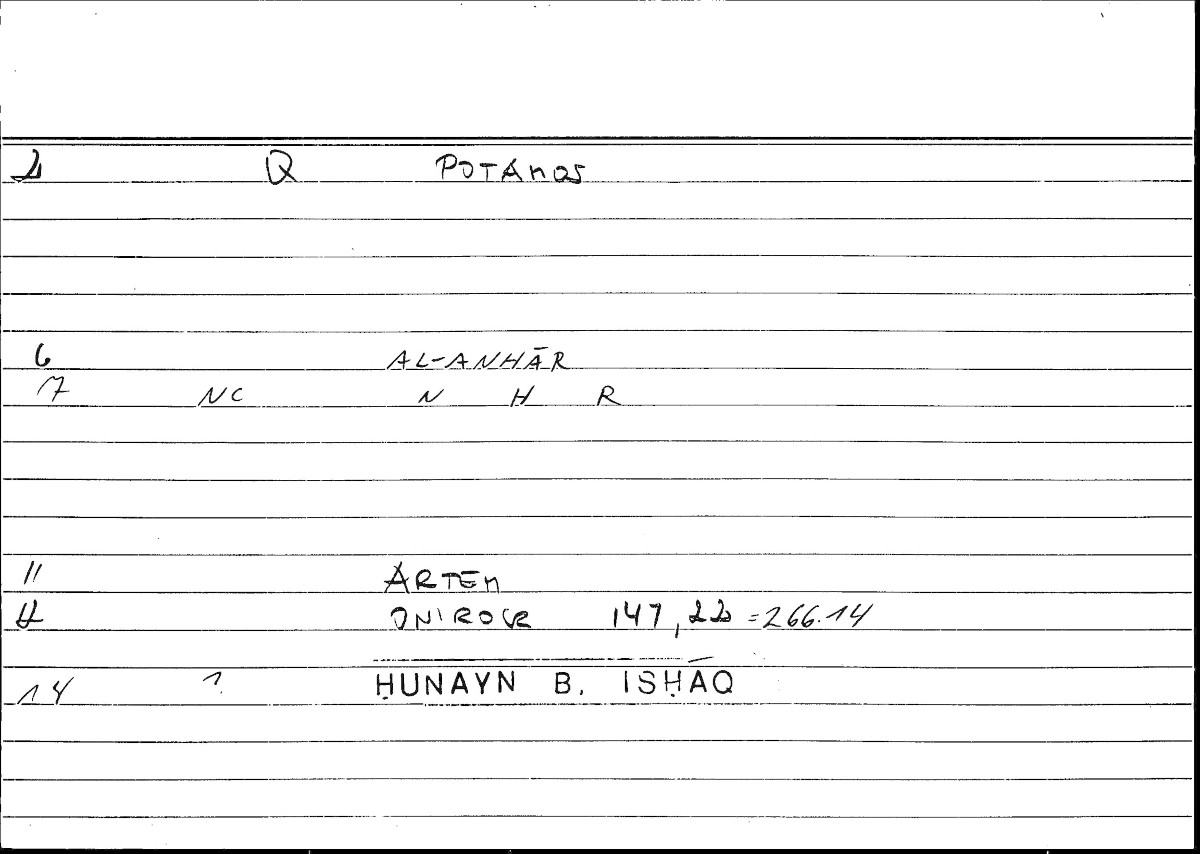 2 Q POTAMOS
6 AL-ANHĀR
17 NC N H R
11 ARTEM
12 ONIROCR 147,22 = 266.14
14 1. ḤUNAYN B. ISḤĀQ